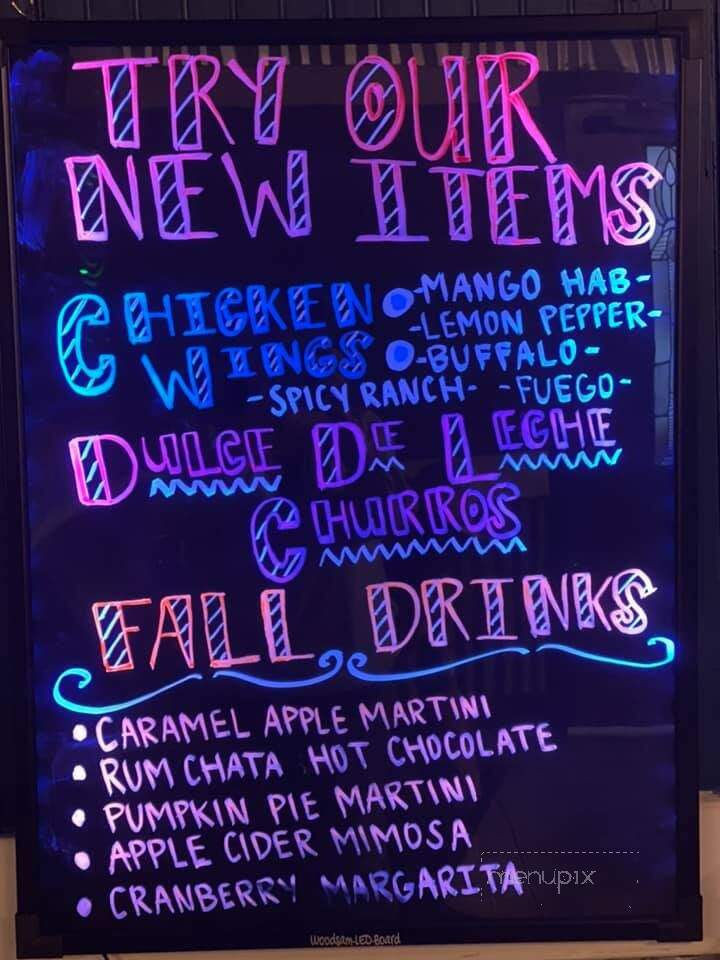 TRY OUR
NEW ITEMS
CHICKEN -MANGO HAB-
-LEMON PEPPER-
WINGS -BUFFALO-
-SPICY RANCH- -FUEGO-
DULCE DE LECHE
CHURROS
FALL DRINKS
• CARAMEL APPLE MARTINI
• RUM CHATA HOT CHOCOLATE
• PUMPKIN PIE MARTINI
• APPLE CIDER MIMOSA
• CRANBERRY MARGARITA
menupix
Woodsam-LED-Board